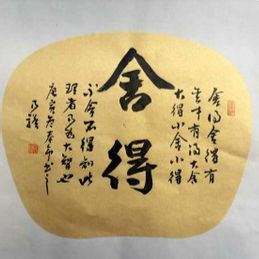 舍得舍得有
舍才有得大舍
大得小舍小得
舍得
不舍不得知此
理者乃为大智也
庚寅